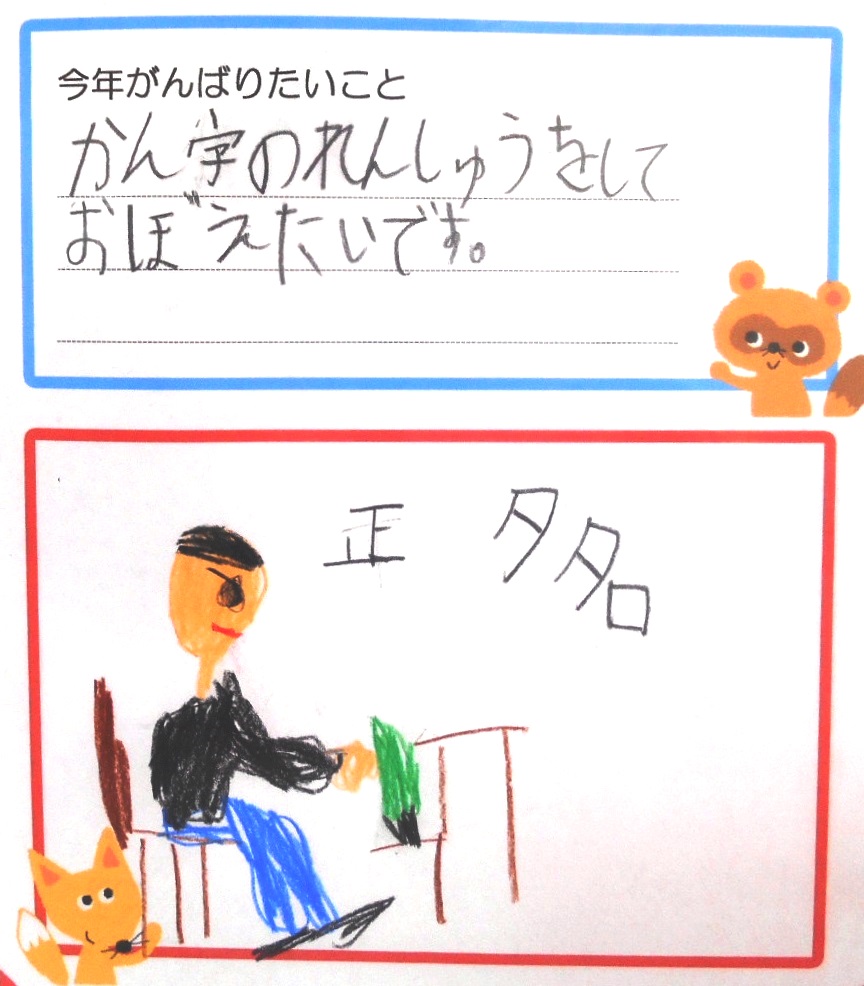 今年がんばりたいこと
かん字のれんしゅうをして
おぼえたいです。
正 夕夕口